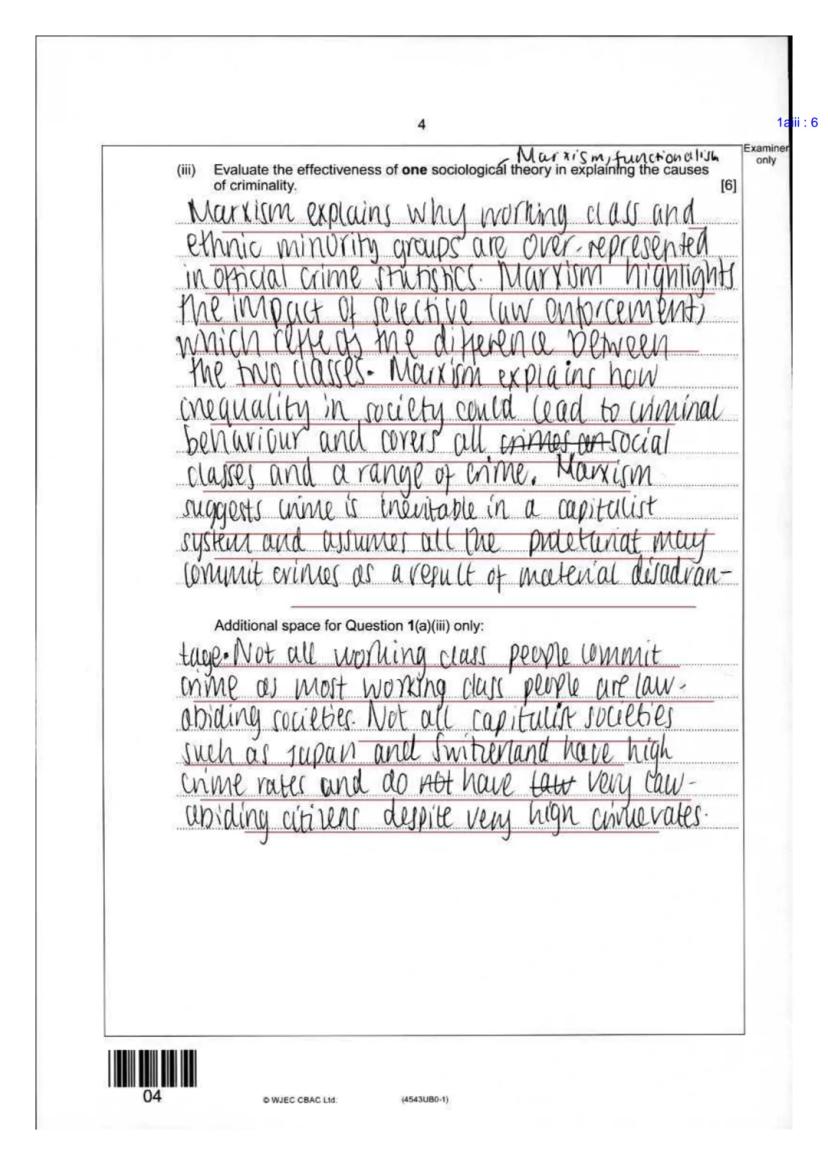 4
1aiii : 6
Examiner
only
Marxism, functionalism
(iii) Evaluate the effectiveness of one sociological theory in explaining the causes
of criminality.
[6]
Marxism explains why working class and
ethnic minority groups are over-represented
in official crime statistics. Marxism highlights
the impact of selective law enforcement,
which reflects the difference between
the two classes. Marxism explains how
inequality in society could lead to criminal
behaviour and covers all crimes an social
classes and a range of crime. Marxism
suggests crime is inevitable in a capitalist
system and assumes all the proletariat may
commit crimes as a result of material disadvan-
Additional space for Question 1(a)(iii) only:
tage. Not all working class people commit
crime as most working class people are law-
abiding societies. Not all capitalist societies
such as Japan and Switzerland have high
crime rates and do not have law very law-
abiding citizens despite very high crime rates.
04
© WJEC CBAC Ltd.
(4543UB0-1)